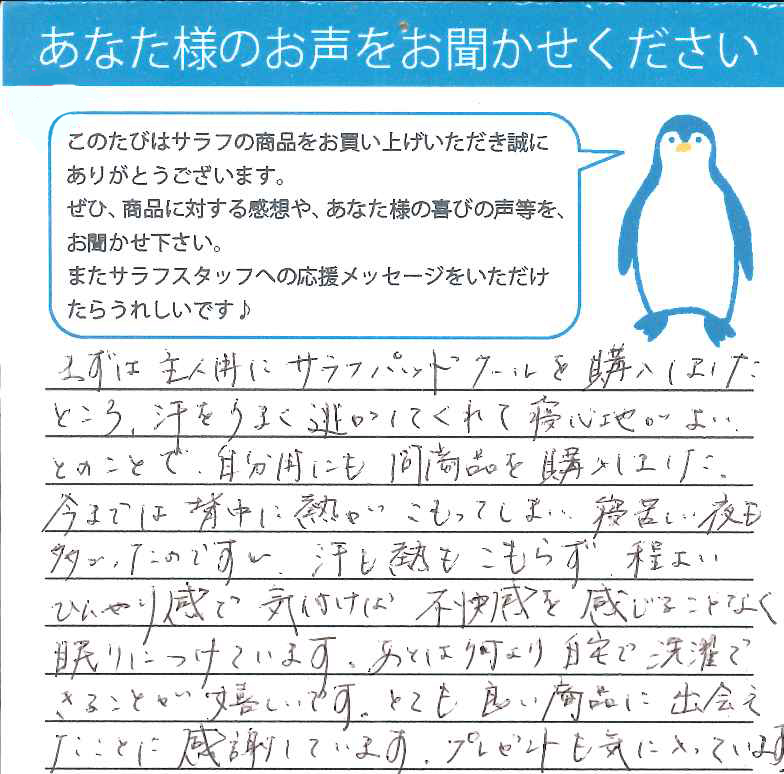 あなた様のお声をお聞かせください
このたびはサラフの商品をお買い上げいただき誠に
ありがとうございます。
ぜひ、商品に対する感想や、あなた様の喜びの声等を、
お聞かせ下さい。
またサラフスタッフへの応援メッセージをいただけ
たらうれしいです♪
まずは主人用にサラフパッドクールを購入しました
ところ、汗をうまく逃がしてくれて寝心地がよい
とのことで、自分用にも同商品を購入しました。
今までは背中に熱がこもってしまい、寝苦しい夜も
多かったのですが、汗も熱もこもらず、程よい
ひんやり感で気付けば不快感を感じることなく
眠りにつけています。あとは何より自宅で洗濯で
きることが嬉しいです。とても良い商品に出会え
たことに感謝しています。プレゼントも気に入っています